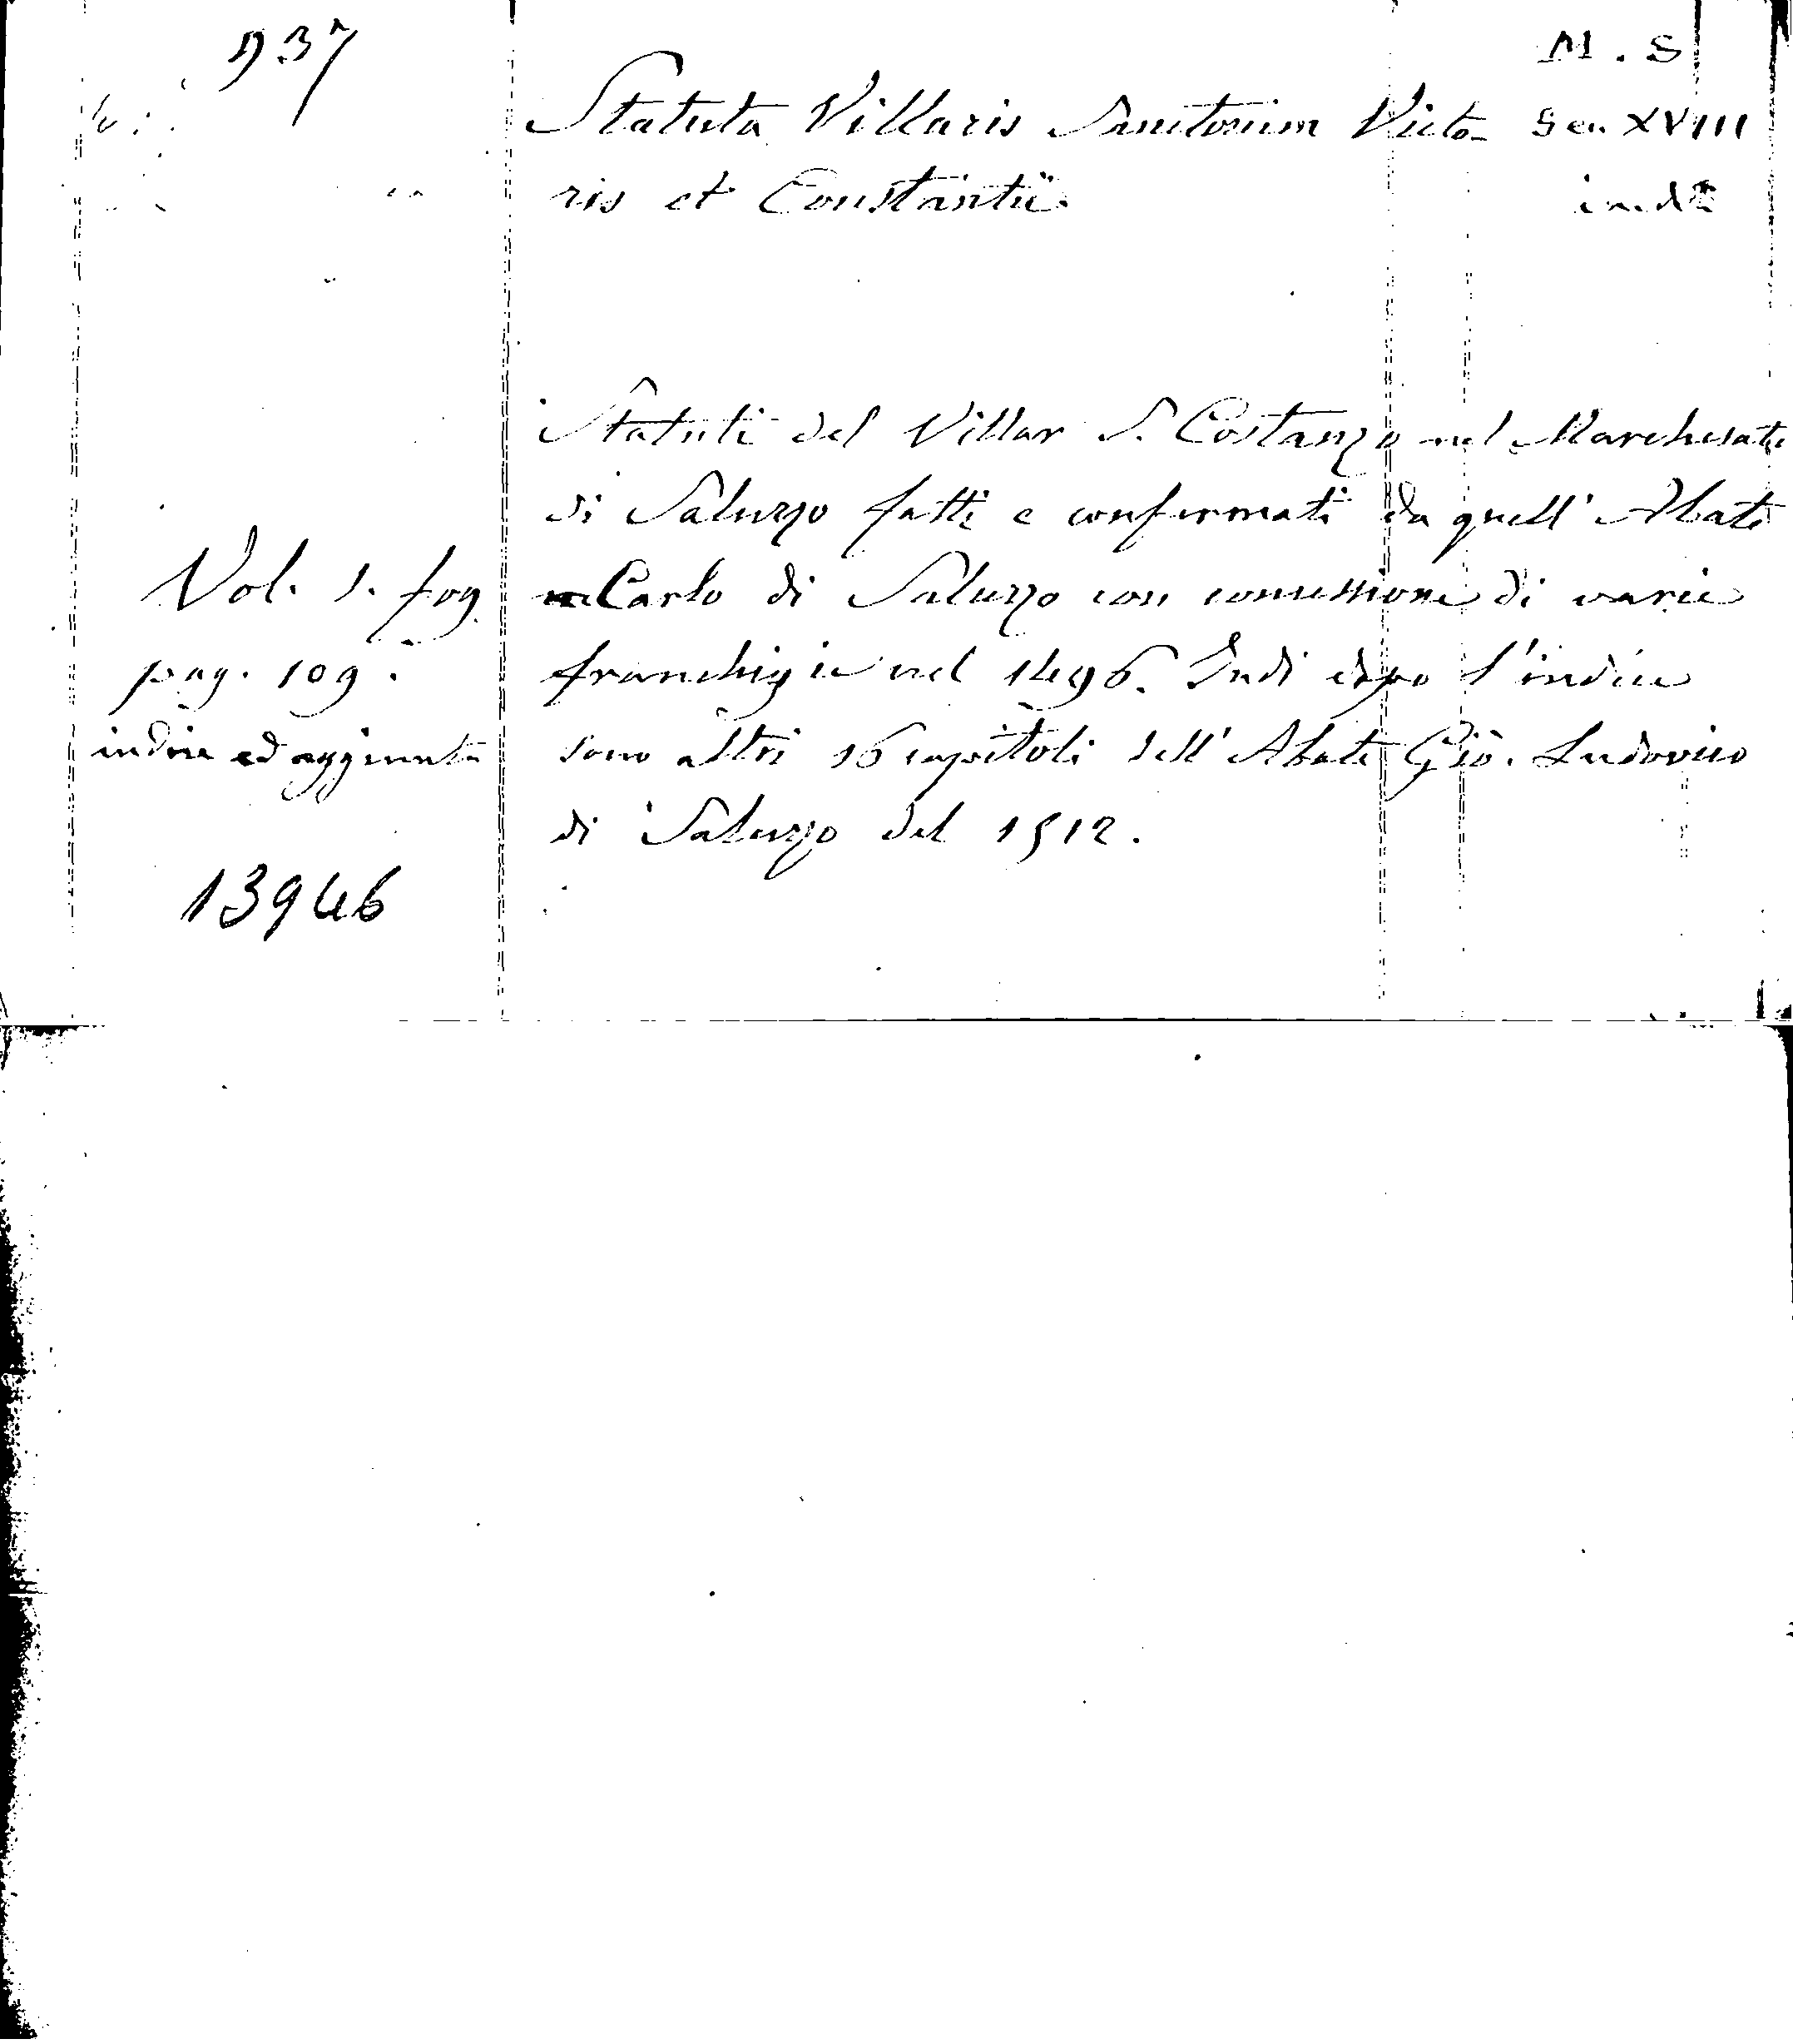 937
M. S
Statuta Villaris Sanctorum Victo- Sec. XVIII
ris et Constantii. ined.
Statuti del Villar S. Costanzo nel Marchesato
di Saluzzo fatti e confermati da quell' Abate
Carlo di Saluzzo con concessione di varie
franchigie nel 1496. Indi dopo l'indice
sono altri 16 capitoli dell' Abate Gio. Ludovico
di Saluzzo del 1512.
Vol. 1. fog.
pag. 109.
indice ed aggiunta
13946